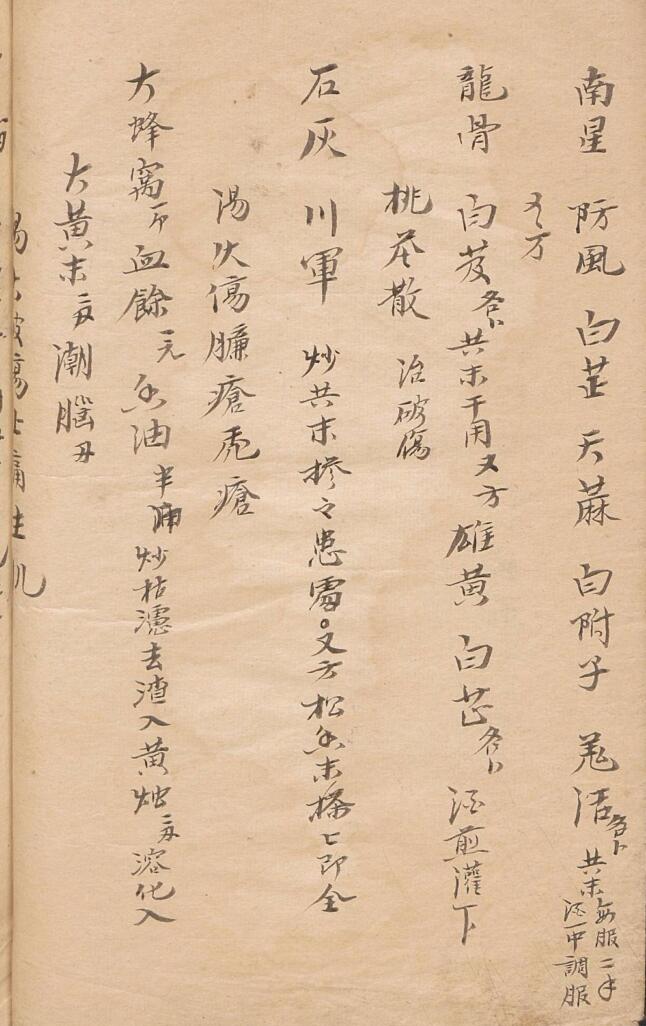 南星 防風 白芷 天蔴 白附子 羌活 各卜 共末 每服二 酒一中調服
又方
龍骨 白芨 各卜 共末干用 又方 雄黄 白芷 各卜 酒煎灌下
桃花散 治破傷
石灰 川軍 炒共末摻之患處。又方松香末搽上即全
湯火傷臁瘡禿瘡
大蜂窩一个 血餘一元 香油半 炒枯濾去渣入黄蜡 溶化入
大黄末 潮腦